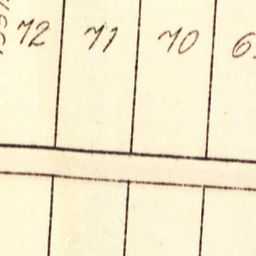 72 71 70